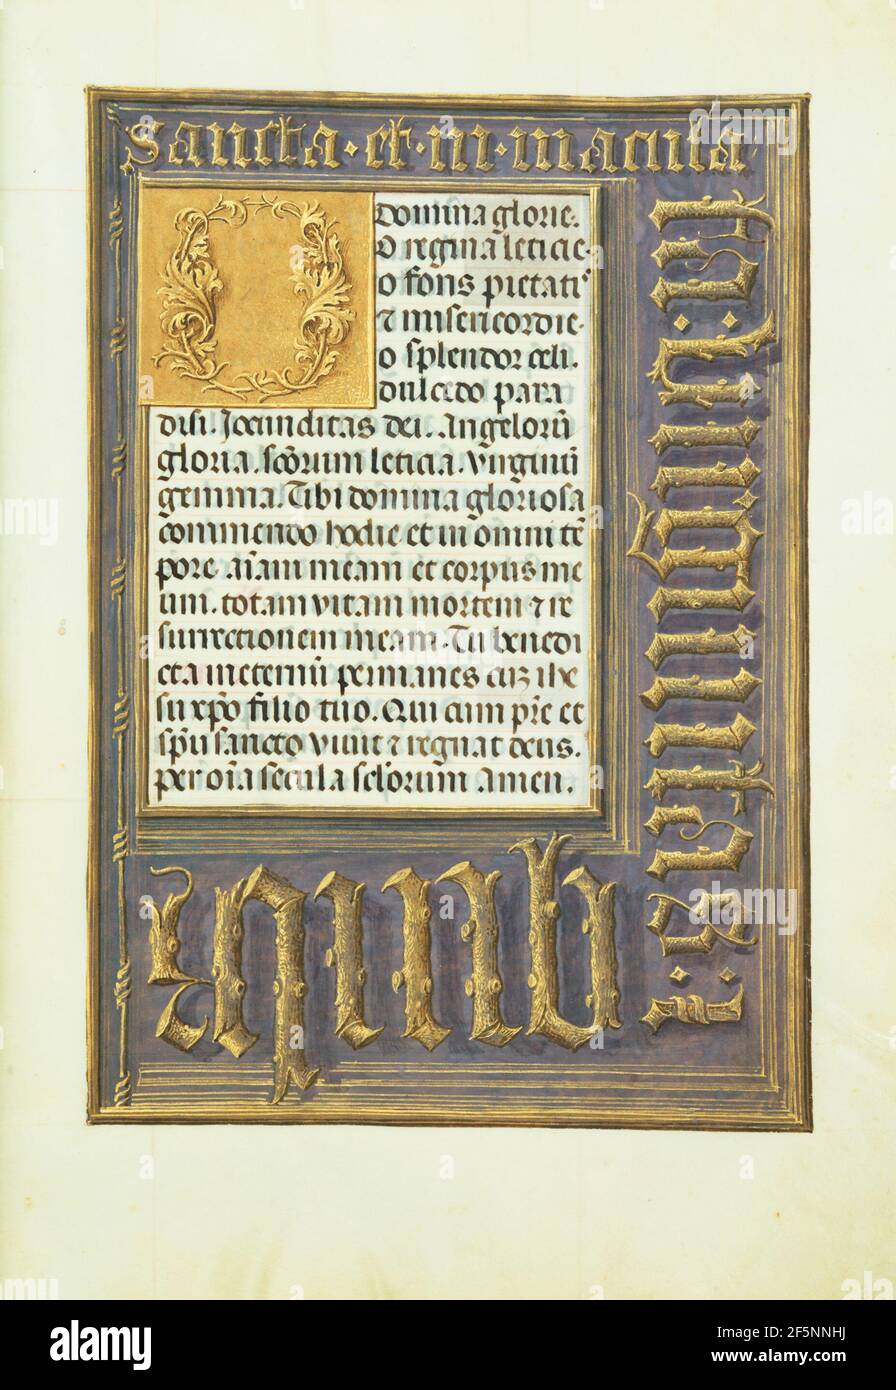 Sancta · et · in · macula
ta · virgĩnitas · i ·
quib
O Domina glorie.
O regina leticie.
o fons pietatis
⁊ misericordie.
o splendor celi.
dulcedo para
disi. Jocunditas dei. Angelorũ
gloria. scõrum leticia. virginũ
gemma. Tibi domina gloriosa
commendo hodie et in omni tẽ
pore. aĩam meam et corpus me
um. totam vitam mortem ⁊ re
surrectionem meam. Tu benedi
cta in eternũ permanes cũ ihe
su xp̃o filio tuo. Qui cum pr̃e et
sp̃u sancto vivit ⁊ regnat deus.
per oĩa secula seclorum amen.
alamy
Image ID: 2F5NNHJ
www.alamy.com